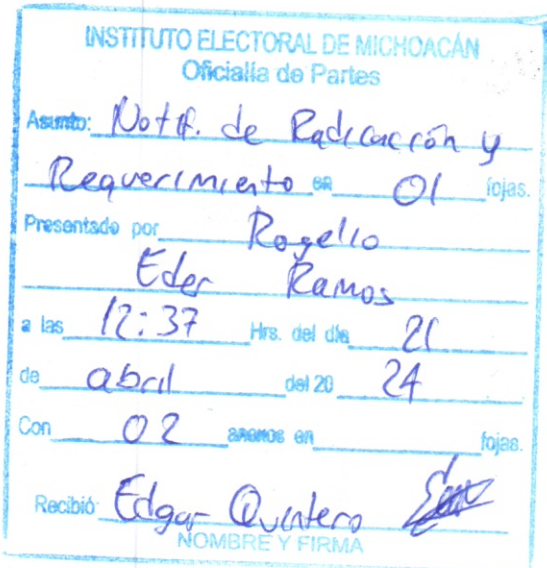 INSTITUTO ELECTORAL DE MICHOACÁN
Oficialía de Partes
Asunto: Notif. de Radicación y
Requerimiento en 01 fojas.
Presentado por Rogelio
Eder Ramos
a las 12:37 Hrs. del día 21
de abril del 20 24
Con 02 anexos en fojas.
Recibió: Edgar Quintero
NOMBRE Y FIRMA